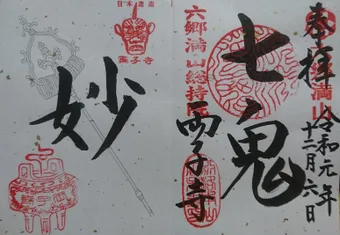 奉拝
令和元年
十二月六日
七鬼
六郷満山総持院
両子寺
妙
両子寺